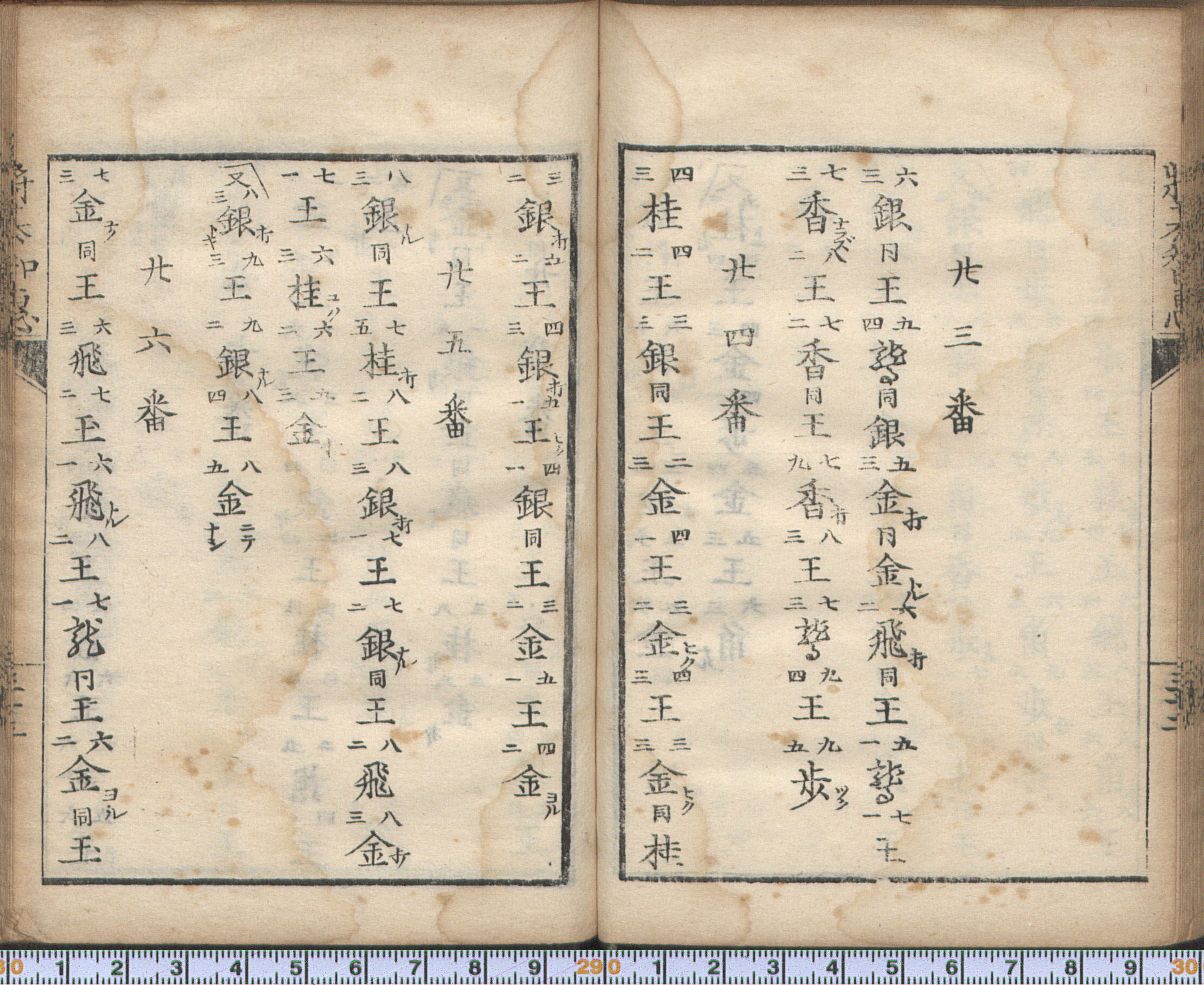 廿三番
六三銀 同王 九四龍馬 同銀 五三金打 同金 一二飛打 同王 九一龍馬 七一王
七三香ナラズ 八二王 七二香 同王 七九香打 八三王 七三龍馬 九四王 九五歩ツク
廿四番
四三桂 四二王 三三銀 同王 二三金 四一王 三二金ヒク 四三王 三三金ヒク 同桂
三二銀打 五二王 四三銀打 五一王 四一銀ヒク 同王 三二金 五一王 四二金ヨル
廿五番
八三銀ナル 同王 七五桂打 八二王 八三銀打 七一王 七二銀ナル 同王 八二飛 八三金打
七一王 六三桂 六二王
又 八三銀打トキ 九三王 九二銀ナル 八四王 八五金ニテヨシ
廿六番
七三金打 同王 六三飛 七二王 六一飛ナル 八二王 七一龍 同王 六二金ヨル 同王